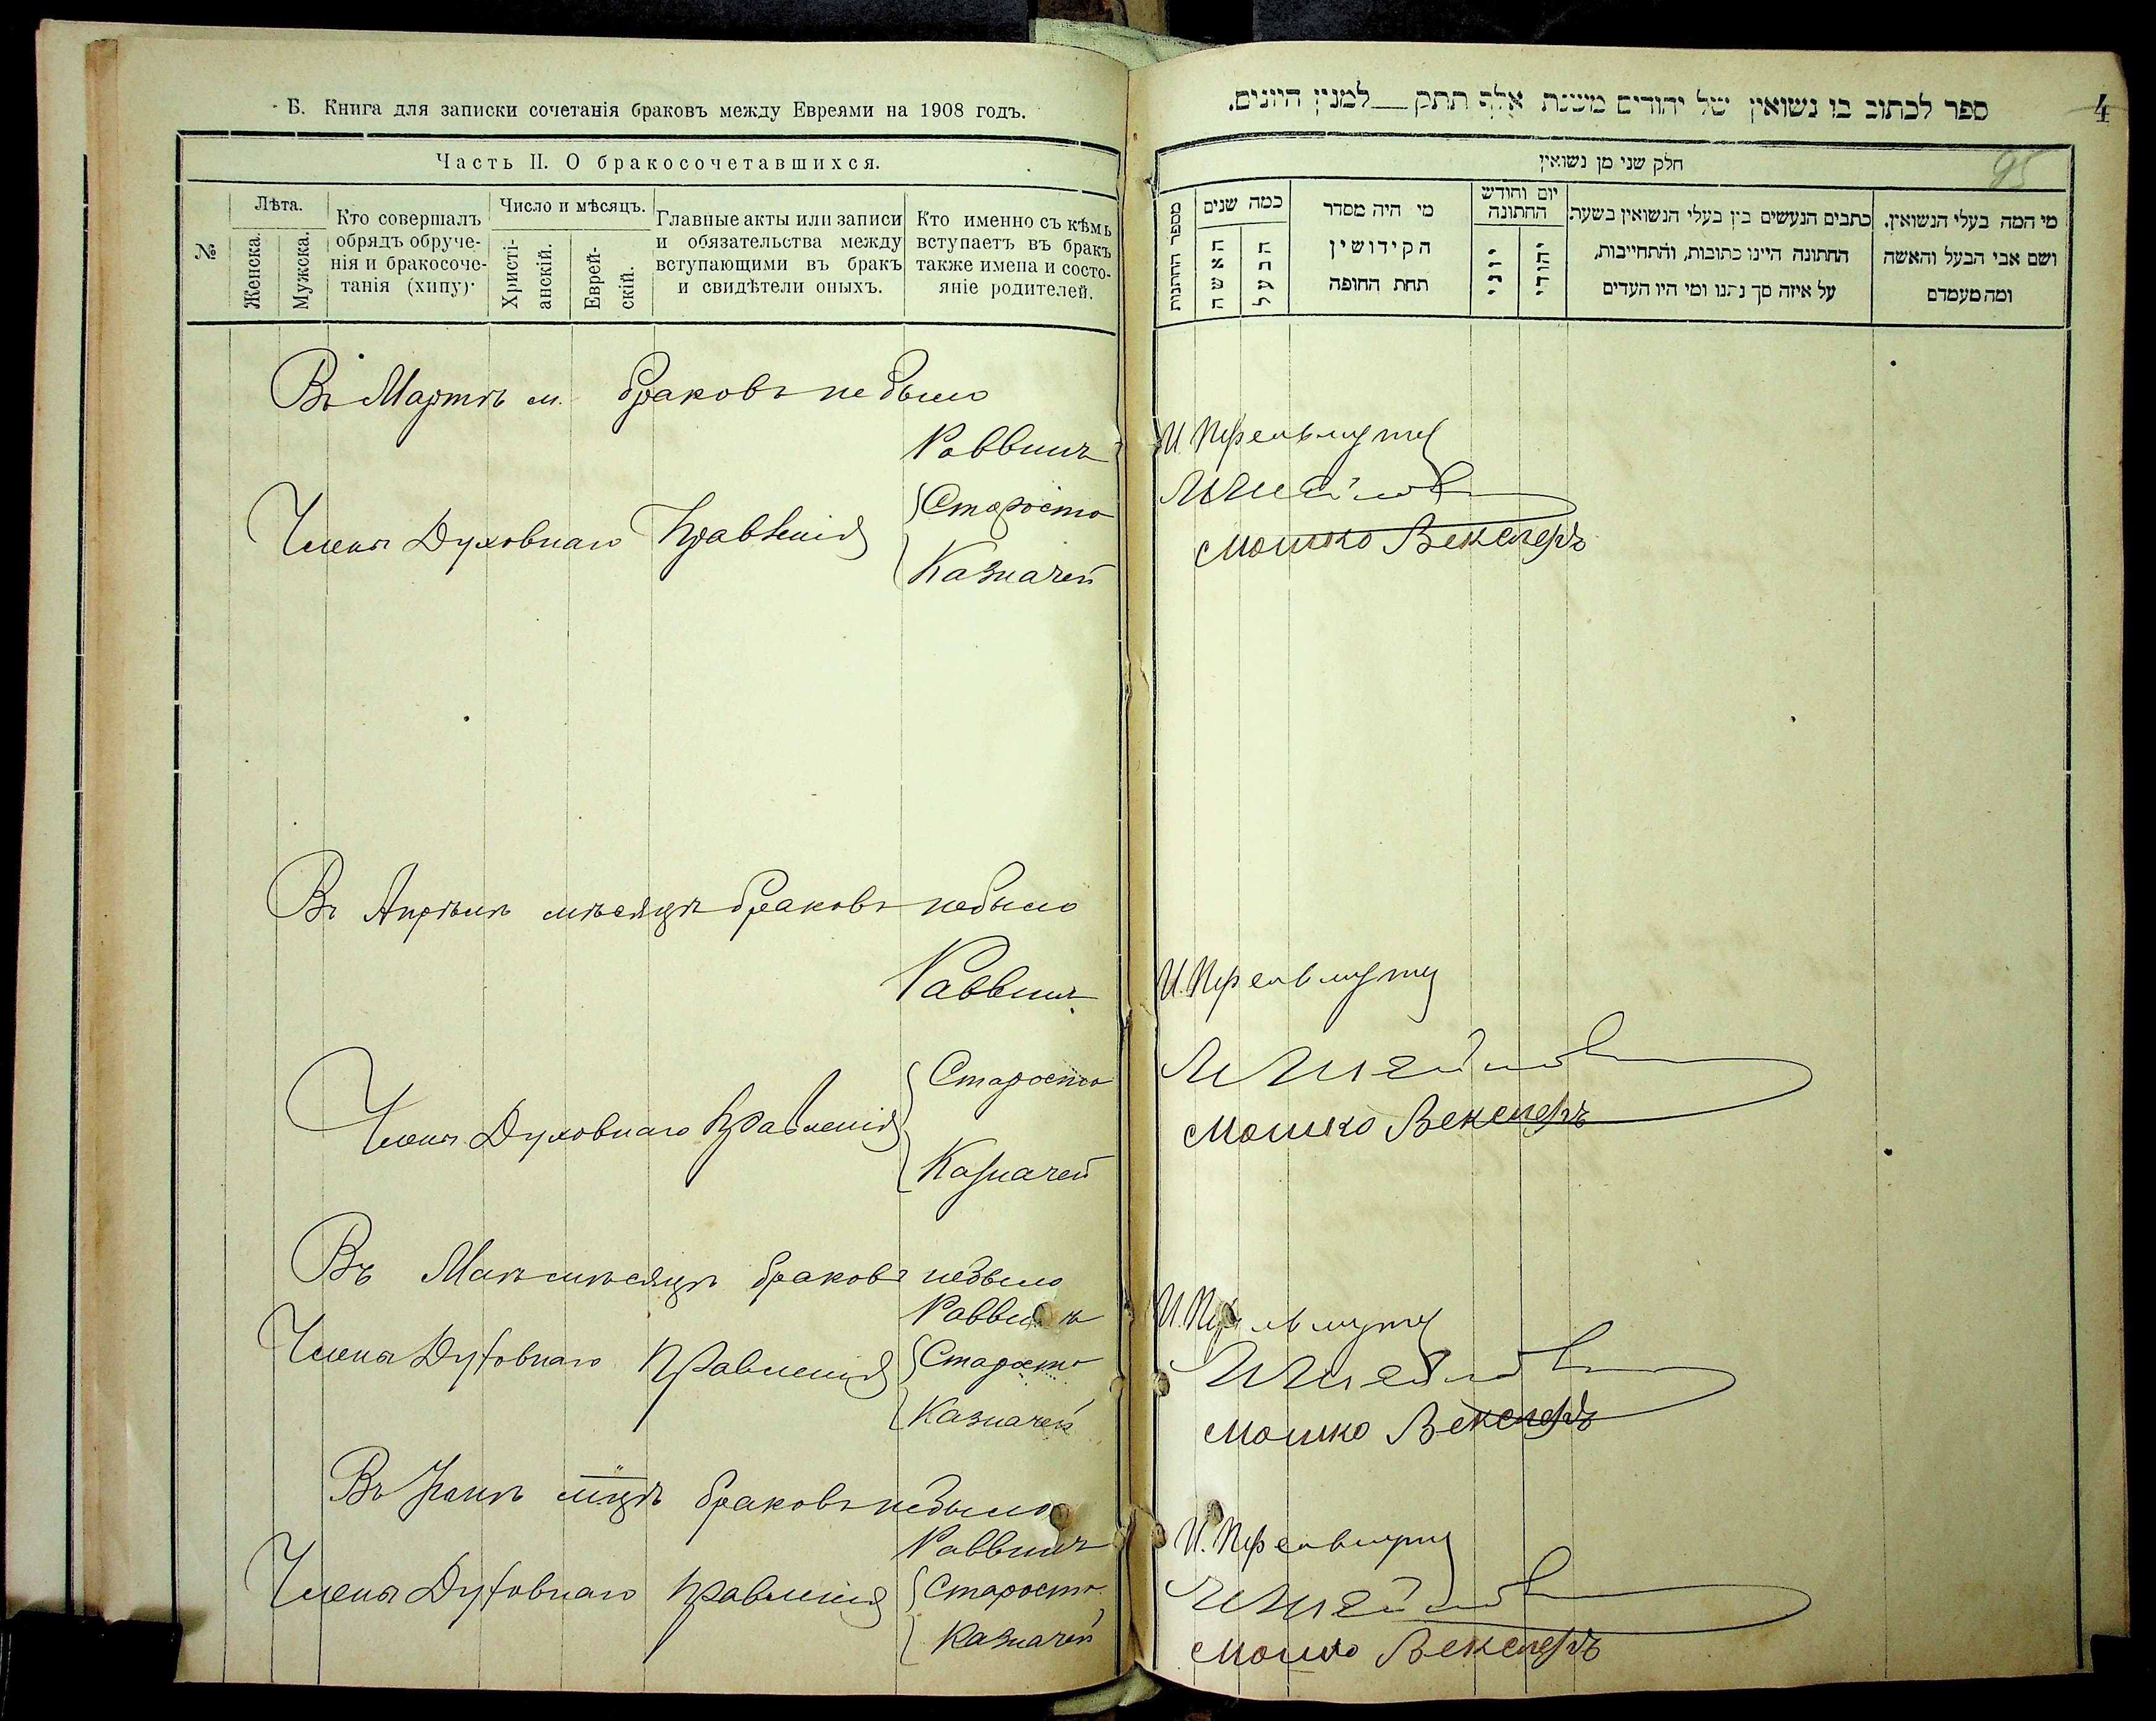 Б. Книга для записки сочетанія браковъ между Евреями на 1908 годъ.
Часть II. О бракосочетавшихся.
№
Лѣта.
Женска.
Мужска.
Кто совершалъ
обрядъ обруче-
нія и бракосоче-
танія (хипу)
Число и мѣсяцъ.
Христі-
анскій.
Еврей-
скій.
Главные акты или записи
и обязательства между
вступающими въ бракъ
и свидѣтели оныхъ.
Кто именно съ кѣмъ
вступаетъ въ бракъ
также имена и состо-
яніе родителей.
Въ Мартѣ м. браковъ не было
Раввинъ
Члены Духовнаго Правленія
Староста
Казначей
Въ Апрѣлѣ мѣсяцѣ браковъ небыло
Раввинъ
Члены Духовнаго Правленія
Староста
Казначей
Въ Маѣ мѣсяцѣ браковъ небыло
Раввинъ
Члены Духовнаго Правленія
Староста
Казначей
Въ Іюнѣ мцѣ браковъ небыло
Раввинъ
Члены Духовнаго Правленія
Староста
Казначей
ספר לכתוב בו נשואין של יהודים משנת אלף תתק למנין היונים.
4
95
חלק שני מן נשואין
מי המה בעלי הנשואין.
ושם אבי הבעל והאשה
ומה מעמדם
כתבים הנעשים בין בעלי הנשואין בשעת
החתונה היינו כתובות, והתחייבות,
על איזה סך נתנו ומי היו העדים
יום וחודש
החתונה
יהודי
יוני
מי היה מסדר
הקידושין
תחת החופה
כמה שנים
הבעל
האשה
מספר החתנות
И.
Мошко Векслеръ
И.
Мошко Векслеръ
И.
Мошко Векслеръ
И.
Мошко Векслеръ